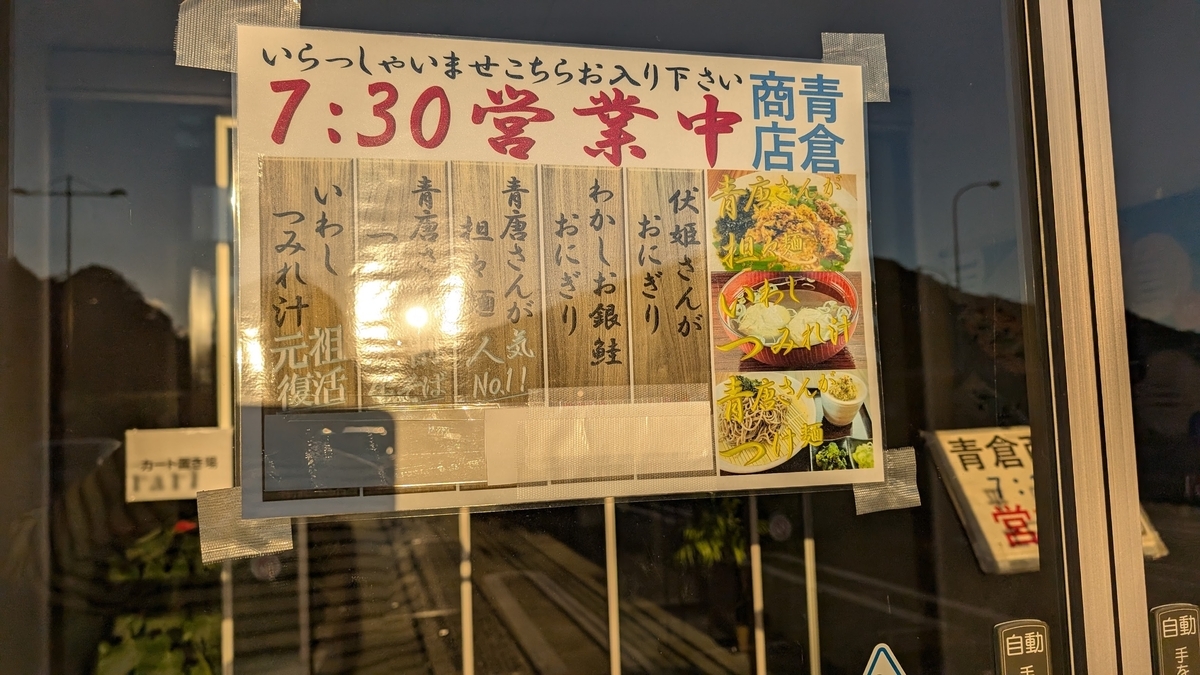 いらっしゃいませこちらお入り下さい
7:30 営業中
青倉
商店
伏姫さんが
おにぎり
わかしお銀鮭
おにぎり
青唐さんが
担々麺
人気
No.1!
青唐さ
つ
そば
いわし
つみれ汁
元祖
復活
青唐さんが
担々麺
いわし
つみれ汁
青唐さんが
つけ麺
カート置き場
青倉商
7:
営
自動
手
自動
手を